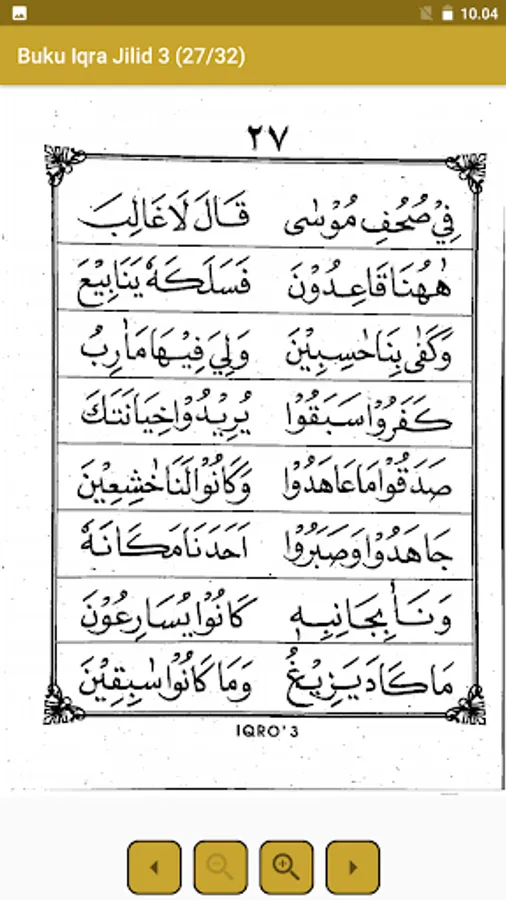 10.04
Buku Iqra Jilid 3 (27/32)
٢٧
فِيْ صُحُفِ مُوْسٰى قَالَ لَا غَالِبَ
هٰهُنَا قَاعِدُوْنَ فَسَلَكَهٗ يَنَابِيْعَ
وَكَفٰى بِنَا حٰسِبِيْنَ وَلِيَ فِيْهَا مَاٰرِبُ
كَفَرُوْا سَبَقُوْا يُرِيْدُوْا خِيَانَتَكَ
صَدَقُوْا مَا عَاهَدُوْا وَكَانُوْا لَنَا خٰشِعِيْنَ
جَاهَدُوْا وَصَبَرُوْا اَحَدَنَا مَكَانَهٗ
وَنَاٰ بِجَانِبِهٖ كَانُوْا يُسَارِعُوْنَ
مَا كَادَ يَزِيْغُ وَمَا كَانُوْا سٰبِقِيْنَ
IQRO'3